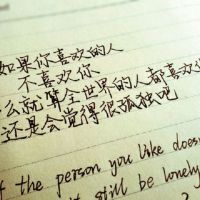 如果你喜欢的人
不喜欢你
么就算全世界的人都喜欢
还是会觉得很孤独吧
f the person you like does
still be lonely